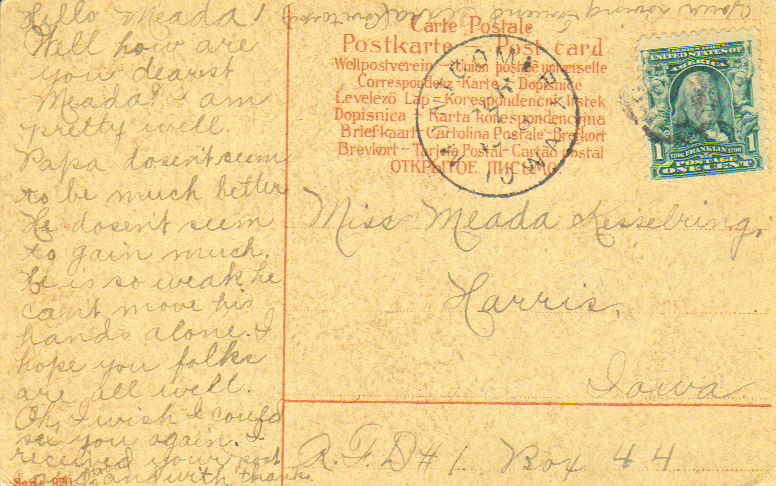 Hello Meada!
Well how are
you dearest
Meada? I am
pretty well.
Papa dosent seem
to be much better
He dosent seem
to gain much.
he is so weak he
can't move his
hands alone. I
hope you folks
are all well.
Oh, I wish I could
see you again. I
received your post
card and with thanks
Your loving
Carte Postale
Postkarte Post card
Weltpostverein Union postale universelle
Correspondenz-Karte Dopisnice
Levelező Lap - Korespondenčni listek
Dopisnica Karta korespondencyjna
Briefkaart Cartolina Postale - Brefkort
Brevkort - Tarjeta Postal - Cartão postal
ОТКРЫТОЕ ПИСЬМО
IOWA
UNITED STATES OF
AMERICA
1 FRANKLIN 1
POSTAGE
ONE CENT
Miss Meada Kesselring,
Harris,
Iowa
R.F.D # 1. Box 44
Serie